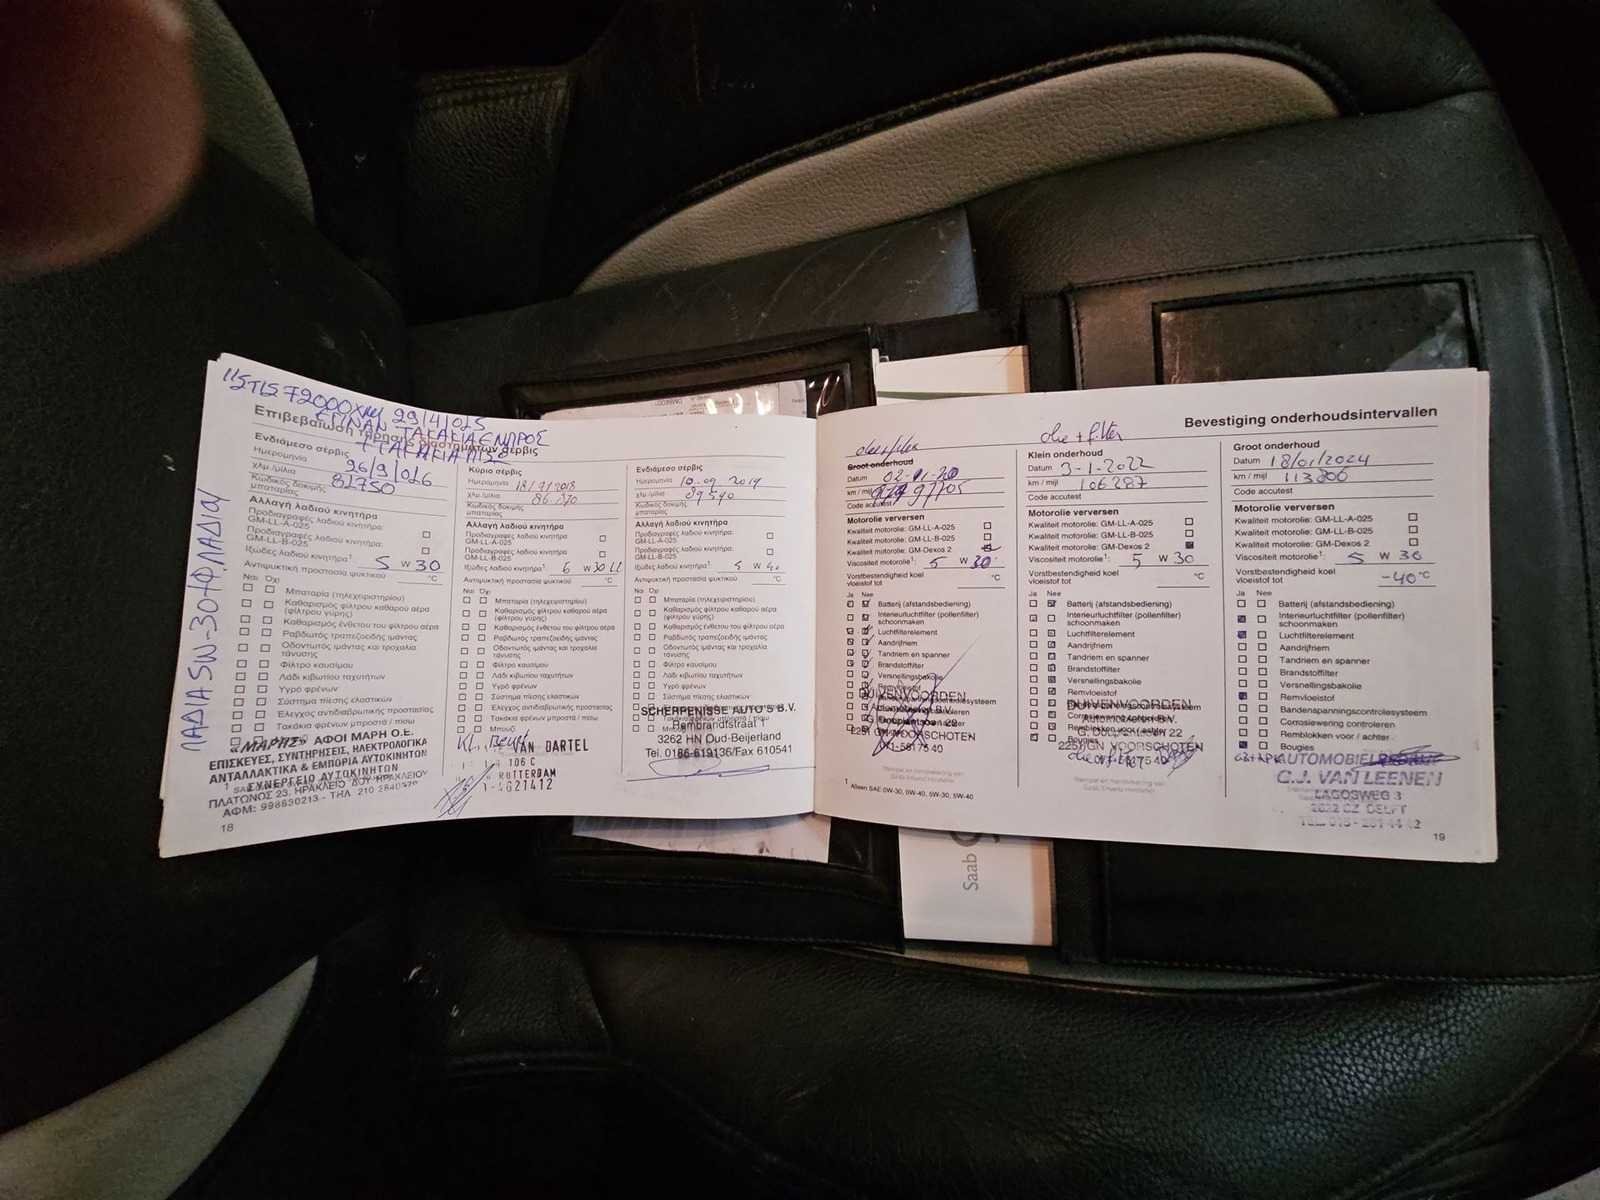 ΣΤΙΣ 72000 ΧΜ 29/4/015
ΕΓΙΝΑΝ ΤΑΚΑΚΙΑ ΕΜΠΡΟΣ
+ ΤΑΚΑΚΙΑ ΠΙΣΩ
ΛΑΔΙΑ 5W-30 Φ.ΛΑΔΙΟΥ
Επιβεβαίωση τήρησης διαστημάτων σέρβις
Ενδιάμεσο σέρβις
Ημερομηνία 26/9/016
χλμ./μίλια 82750
Κωδικός δοκιμής μπαταρίας
Αλλαγή λαδιού κινητήρα
Προδιαγραφές λαδιού κινητήρα:
GM-LL-A-025
Προδιαγραφές λαδιού κινητήρα:
GM-LL-B-025
Ιξώδες λαδιού κινητήρα¹: 5 W 30
Αντιψυκτική προστασία ψυκτικού °C
Ναι Όχι
Μπαταρία (τηλεχειριστηρίου)
Καθαρισμός φίλτρου καθαρού αέρα
(φίλτρου γύρης)
Καθαρισμός ένθετου του φίλτρου αέρα
Ραβδωτός τραπεζοειδής ιμάντας
Οδοντωτός ιμάντας και τροχαλία
τάνυσης
Φίλτρο καυσίμου
Λάδι κιβωτίου ταχυτήτων
Υγρό φρένων
Σύστημα πίεσης ελαστικών
Έλεγχος αντιδιαβρωτικής προστασίας
Τακάκια φρένων μπροστά / πίσω
«ΜΑΡΗΣ» ΑΦΟΙ ΜΑΡΗ Ο.Ε.
ΕΠΙΣΚΕΥΕΣ, ΣΥΝΤΗΡΗΣΕΙΣ, ΗΛΕΚΤΡΟΛΟΓΙΚΑ
ΑΝΤΑΛΛΑΚΤΙΚΑ & ΕΜΠΟΡΙΑ ΑΥΤΟΚΙΝΗΤΩΝ
ΣΥΝΕΡΓΕΙΟ ΑΥΤΟΚΙΝΗΤΩΝ
ΠΛΑΤΩΝΟΣ 23, ΗΡΑΚΛΕΙΟ
ΑΦΜ: 998630213 - ΤΗΛ. 210
18
Κύριο σέρβις
Ημερομηνία 2018
χλμ./μίλια
Κωδικός δοκιμής
μπαταρίας
Αλλαγή λαδιού κινητήρα
Προδιαγραφές λαδιού κινητήρα:
GM-LL-A-025
Προδιαγραφές λαδιού κινητήρα:
GM-LL-B-025
Ιξώδες λαδιού κινητήρα¹: W 30
Αντιψυκτική προστασία ψυκτικού °C
Ναι Όχι
Μπαταρία (τηλεχειριστηρίου)
Καθαρισμός φίλτρου καθαρού αέρα
(φίλτρου γύρης)
Καθαρισμός ένθετου του φίλτρου αέρα
Ραβδωτός τραπεζοειδής ιμάντας
Οδοντωτός ιμάντας και τροχαλία
τάνυσης
Φίλτρο καυσίμου
Λάδι κιβωτίου ταχυτήτων
Υγρό φρένων
Σύστημα πίεσης ελαστικών
Έλεγχος αντιδιαβρωτικής προστασίας
Τακάκια φρένων μπροστά / πίσω
Μπουζί
VAN DARTEL
106 C
ROTTERDAM
4621412
Ενδιάμεσο σέρβις
Ημερομηνία 10-09 2019
χλμ./μίλια 89540
Κωδικός δοκιμής
μπαταρίας
Αλλαγή λαδιού κινητήρα
Προδιαγραφές λαδιού κινητήρα:
GM-LL-A-025
Προδιαγραφές λαδιού κινητήρα:
GM-LL-B-025
Ιξώδες λαδιού κινητήρα¹: 5 W 40
Αντιψυκτική προστασία ψυκτικού °C
Μπαταρία (τηλεχειριστηρίου)
Καθαρισμός φίλτρου καθαρού αέρα
(φίλτρου γύρης)
Καθαρισμός ένθετου του φίλτρου αέρα
Ραβδωτός τραπεζοειδής ιμάντας
Οδοντωτός ιμάντας και τροχαλία
τάνυσης
Φίλτρο καυσίμου
Λάδι κιβωτίου ταχυτήτων
Υγρό φρένων
Σύστημα πίεσης ελαστικών
Έλεγχος αντιδιαβρωτικής προστασίας
Τακάκια φρένων μπροστά / πίσω
SCHERPENISSE AUTO'S B.V.
Rembrandtstraat 1
3262 HN Oud-Beijerland
Tel. 0186-619136/Fax 610541
Bevestiging onderhoudsintervallen
Groot onderhoud
Datum
km / mijl 97705
Code accutest
Motorolie verversen
Kwaliteit motorolie: GM-LL-A-025
Kwaliteit motorolie: GM-LL-B-025
Kwaliteit motorolie: GM-Dexos 2
Viscositeit motorolie¹: 5 W 30
Vorstbestendigheid koel
vloeistof tot °C
Ja Nee
Batterij (afstandsbediening)
Interieurluchtfilter (pollenfilter)
schoonmaken
Luchtfilterelement
Aandrijfriem
Tandriem en spanner
Brandstoffilter
Versnellingsbakolie
DUIVENVOORDEN
2251 GN VOORSCHOTEN
071-5617540
¹ Alleen SAE 0W-30, 0W-40, 5W-30, 5W-40
olie + filter
Klein onderhoud
Datum 3-1-2022
km / mijl 106287
Code accutest
Motorolie verversen
Kwaliteit motorolie: GM-LL-A-025
Kwaliteit motorolie: GM-LL-B-025
Kwaliteit motorolie: GM-Dexos 2
Viscositeit motorolie¹: 5 W 30
Vorstbestendigheid koel
vloeistof tot °C
Ja Nee
Batterij (afstandsbediening)
Interieurluchtfilter (pollenfilter)
schoonmaken
Luchtfilterelement
Aandrijfriem
Tandriem en spanner
Brandstoffilter
Versnellingsbakolie
Remvloeistof
DUIVENVOORDEN
2251 GN VOORSCHOTEN
Groot onderhoud
Datum 18/01/2024
km / mijl 113806
Code accutest
Motorolie verversen
Kwaliteit motorolie: GM-LL-A-025
Kwaliteit motorolie: GM-LL-B-025
Kwaliteit motorolie: GM-Dexos 2
Viscositeit motorolie¹: 5 W 30
Vorstbestendigheid koel
vloeistof tot -40 °C
Ja Nee
Batterij (afstandsbediening)
Interieurluchtfilter (pollenfilter)
schoonmaken
Luchtfilterelement
Aandrijfriem
Tandriem en spanner
Brandstoffilter
Versnellingsbakolie
Remvloeistof
Bandenspanningscontrolesysteem
Corrosiewering controleren
Remblokken voor / achter
Bougies
AUTOMOBIELBEDRIJF
G.J. VAN LEENEN
LAGOSWEG 3
2622 CZ DELFT
19
Saab